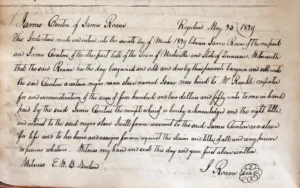 James Conton of James Roane Registered May 30th 1839
This Indenture made and entered into the seventh day of March 1839 between James Roane of the one part
and James Conton of the other part both of the Town of Nashville and State of Tennessee. Witnesseth
that the said Roane has this day bargained and sold and does by these presents bargain and sell unto
the said Conton a certain negro man slave named now hired to Mr. carpenter
for and in consideration of the sum of five hundred and two dollars and fifty cents to me in hand
paid by the said James Conton the receipt whereof is hereby acknowledged and the right title
and interest to the said negro slave I will forever warrant to the said James Conton as a slave
for life and to his heirs and assigns forever against the claim and title of all and any person
or persons whatsoever. Witness my hand and seal this day and year first above written
Witness E. M. B. J. Roane seal